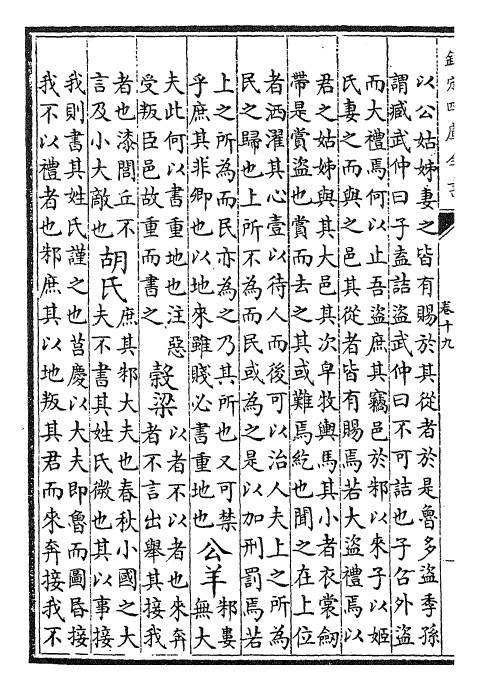 欽定四庫全書
卷十九
以公姑姊妻之皆有賜於其從者於是魯多盜季孫
謂臧武仲曰子盍詰盜武仲曰不可詰也子召外盜
而大禮焉何以止吾盜庶其竊邑於邾以來子以姬
氏妻之而與之邑其從者皆有賜焉若大盜禮焉以
君之姑姊與其大邑其次皁牧輿馬其小者衣裳劎
帶是賞盜也賞而去之其或難焉紇也聞之在上位
者洒濯其心壹以待人而後可以治人夫上之所為
民之歸也上所不為而民或為之是以加刑罰焉若
上之所為而民亦為之乃其所也又可禁
乎庶其非卿也以地來雖賤必書重地也
公羊
邾婁
無大
夫此何以書重地也注惡
受叛臣邑故重而書之
穀梁
以者不以者也來奔
者不言出舉其接我
者也漆閭丘不
言及小大敵也
胡氏
庶其邾大夫也春秋小國之大
夫不書其姓氏微也其以事接
我則書其姓氏謹之也莒慶以大夫即魯而圖昏接
我不以禮者也邾庶其以地叛其君而來奔接我不